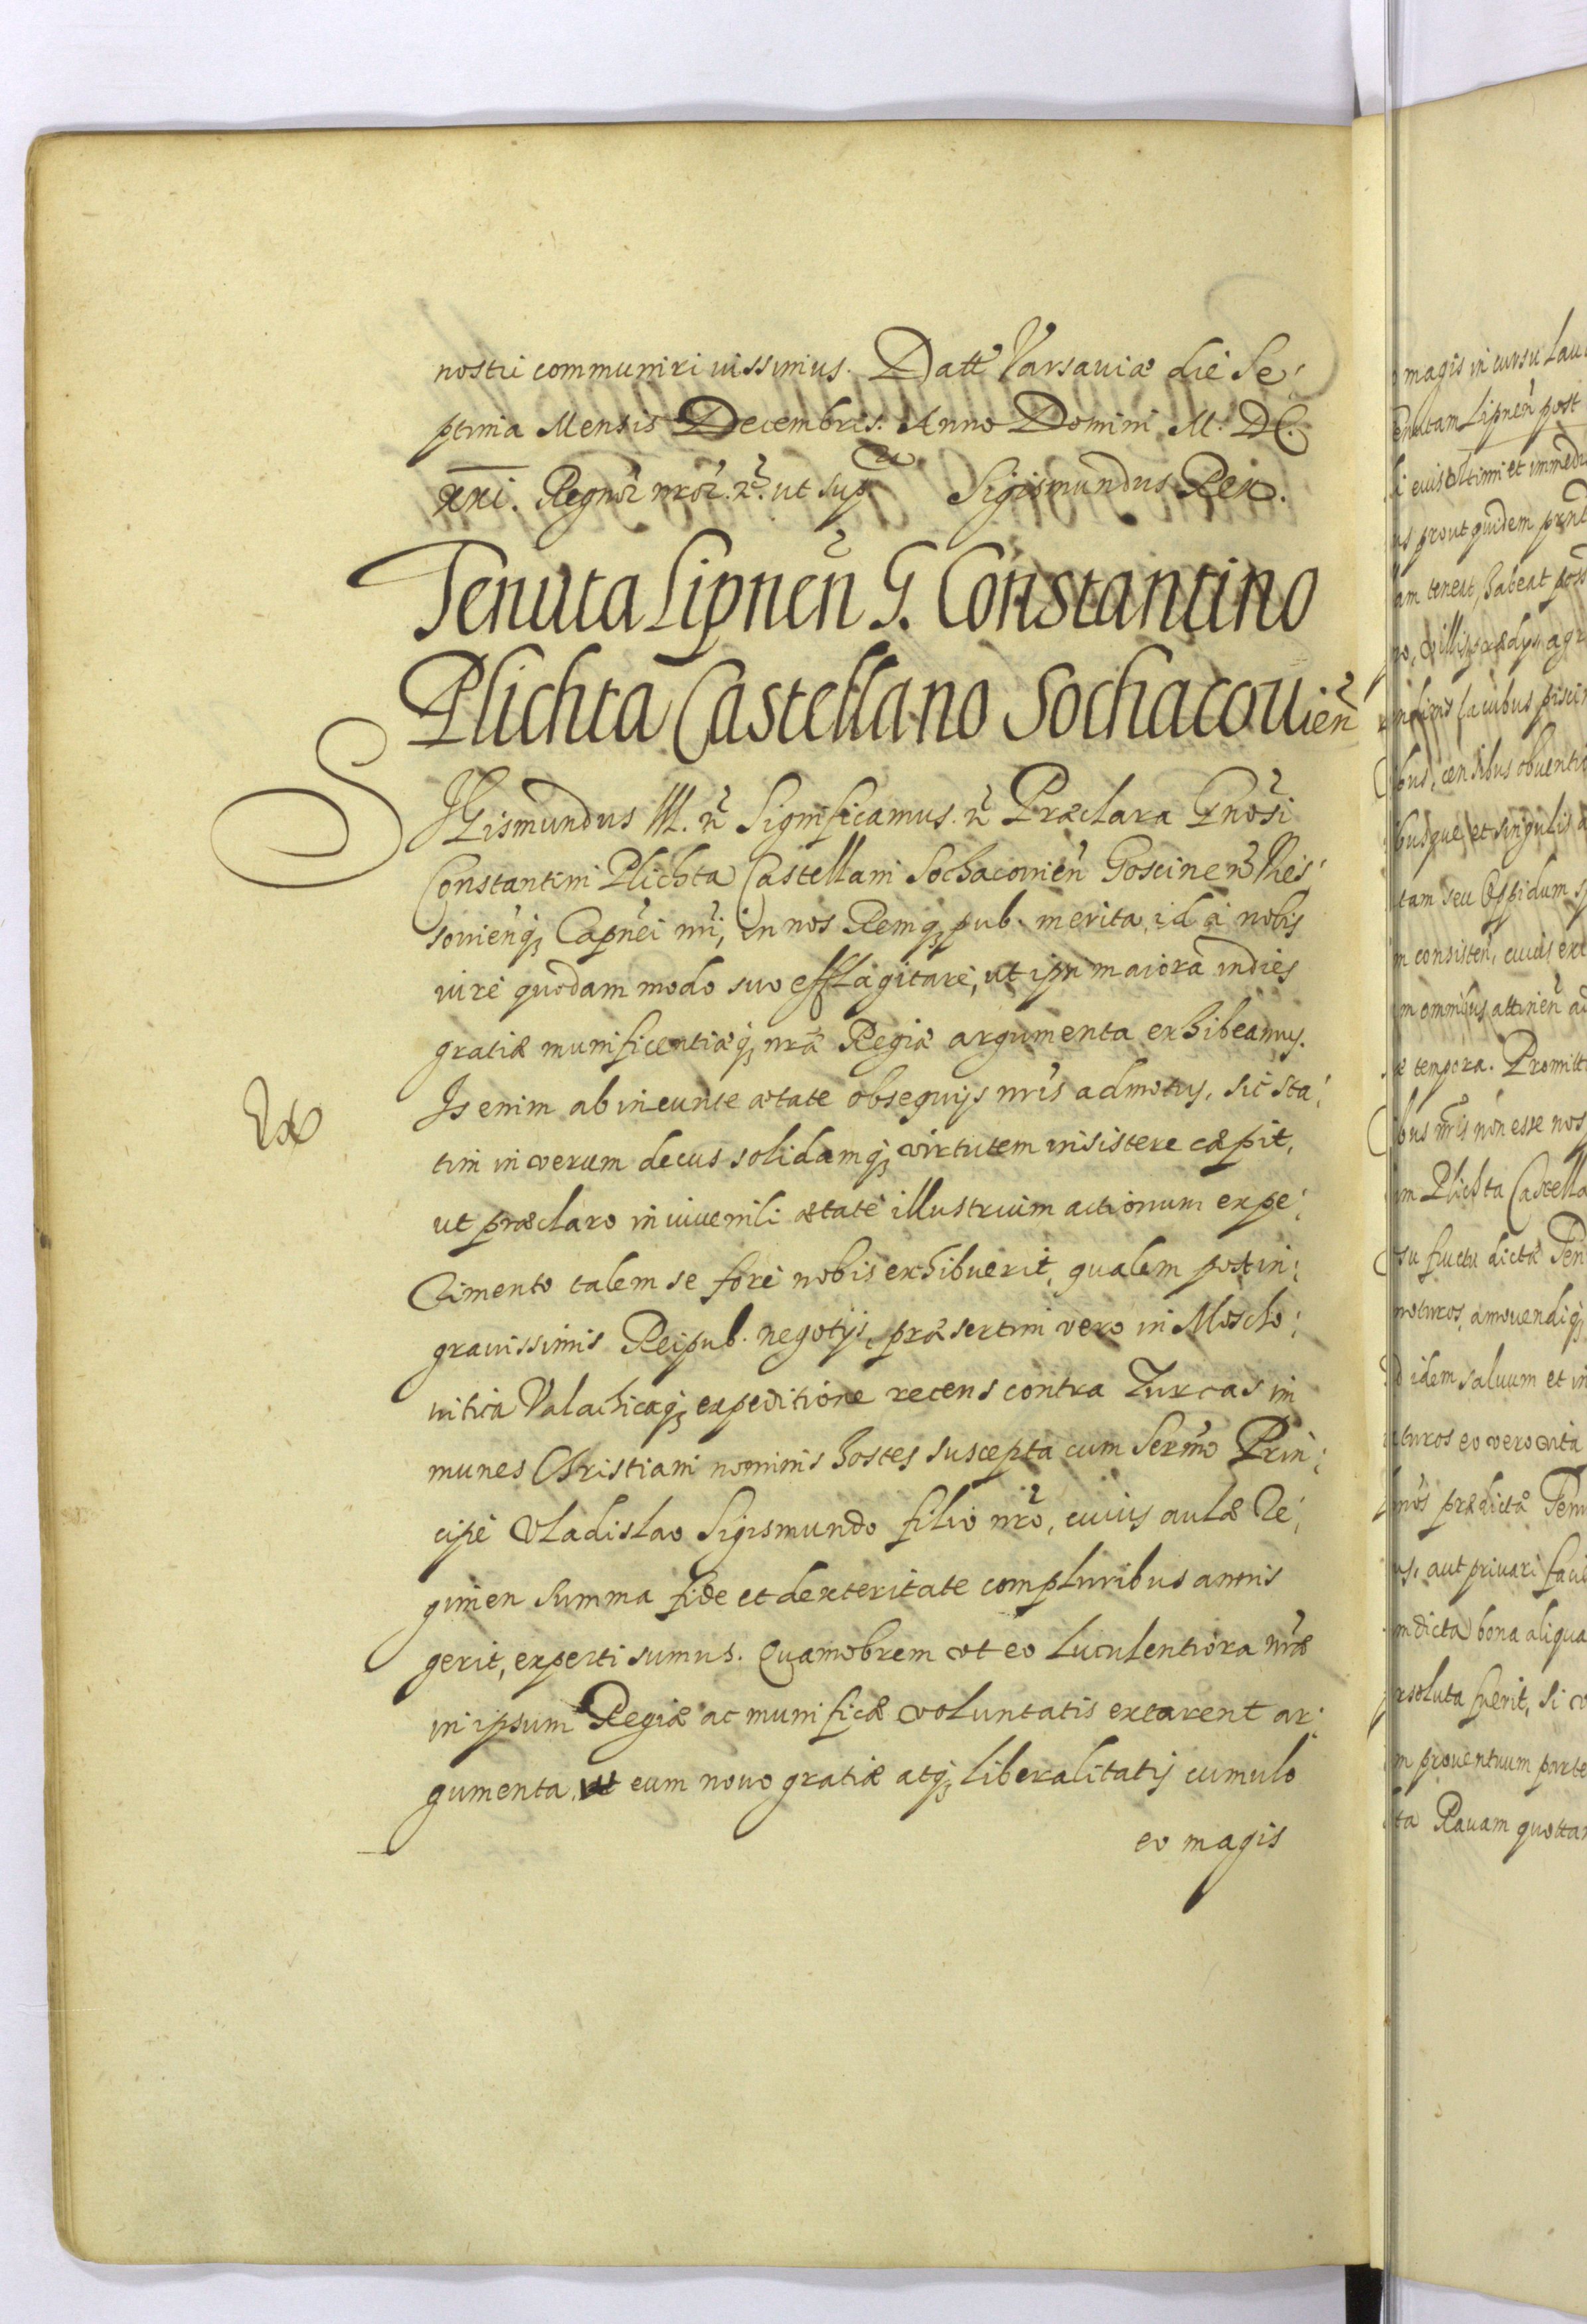 nostri communiri iussimus. Datt Varsauiæ die Se:
ptima Mensis Decembris. Anno Domini M. DC.
xxi. Regnor̃ nror̃. ñ. ut sup̃ra Sigismundus Rex.
Tenuta Lipneñ G. Constantino
Plichta Castellano Sochacouieñ
SIGismundus III. ñ Significamus. ñ Præclara Gnõsi
Constantini Plichta Castellani Sochacouień Goscineń Rės:
souieńq; Capńei nri, in nos Remq; pub. merita, id á nobis
iure quodam modo suo efflagitare, ut ipsi maiora indies
gratiæ munificentiæq; nræ Regiæ argumenta exhibeamus.
Is enim ab ineunte ætate obsequijs nris admotus, sic sta:
Ex
tim in verum decus solidamq; virtutem insistere cæpit,
ut præclaro in iuuenili ætate illustrium actionum expe:
rimento talem se fore nobis exhibuerit, qualem post in:
grauissimis Reipub. negotijs, præsertim vero in Moscho:
uitica Valachicaq; expeditione recens contra Turcas im
munes Christiani nominis hostes suscepta cum Sermo Prin:
cipe Vladislao Sigismundo filio nro, cuius aulæ Re:
gimen summa fide et dexteritate compluribus annis
gerit, experti sumus. Quamobrem vt eo luculentiora nræ
in ipsum Regiæ ac munificæ voluntatis extarent ar:
gumenta, ut eum nouo gratiæ atq; liberalitatis cumulo
eo magis
magis in cursu lau
Lipneń post
ultimi et immedi
prout quidem
teneat, habeat
villis prædijs agr
lacubus piscin
censibus obuentio
busque et singulis a
tam seu Oppidum
consisteń, cuius
omnibus attineń ad
tempora. Promitt
nris non esse nos
Plichta Castella
su fructu dicta Ten
amouendiq;
idem saluum et in
eo vero vita
prædicta Tenu
aut priuari faci
dicta bona aliqua
fuerit, si
prouentuum parte
Rauam quottan